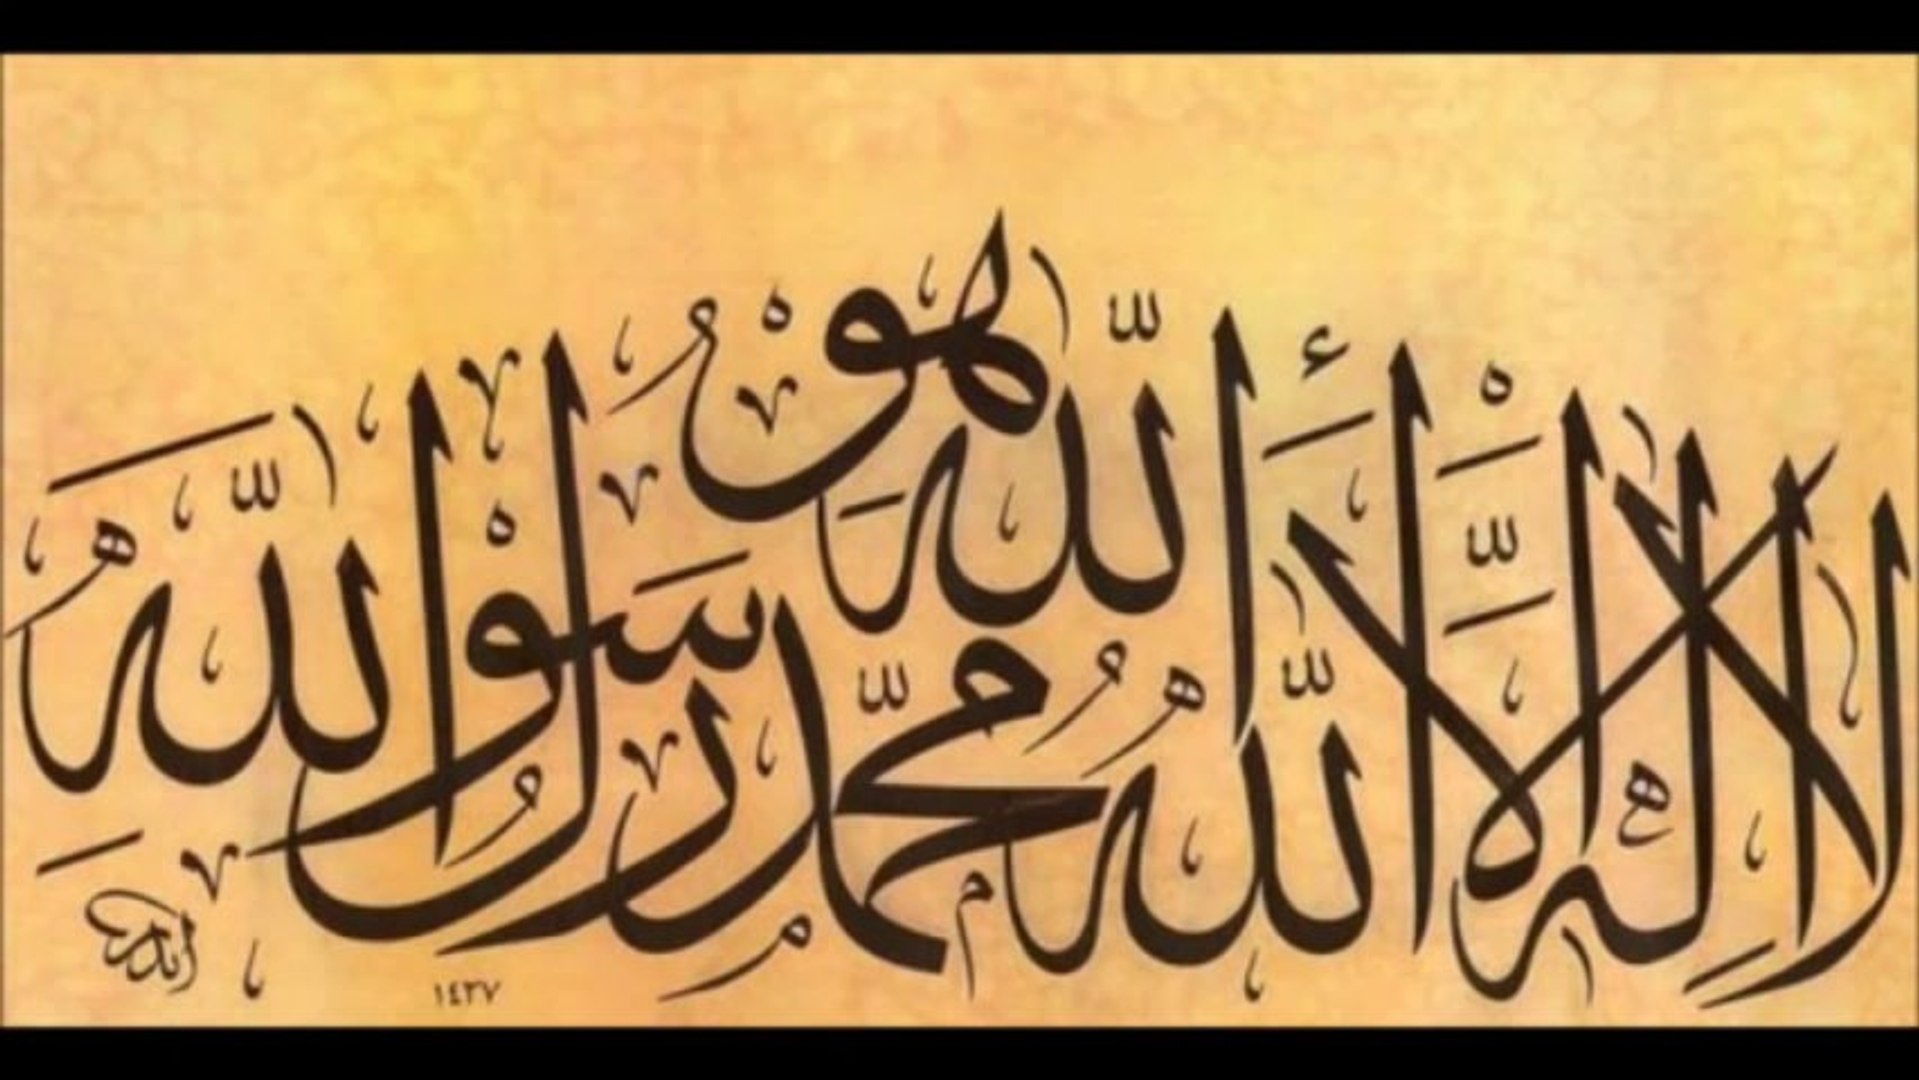 لَا إِلٰهَ إِلَّا اللّٰهُ أَللّٰهُ هُوْ مُحَمَّدٌ رَسُوْلُ اللّٰهِ
١٤٣٧